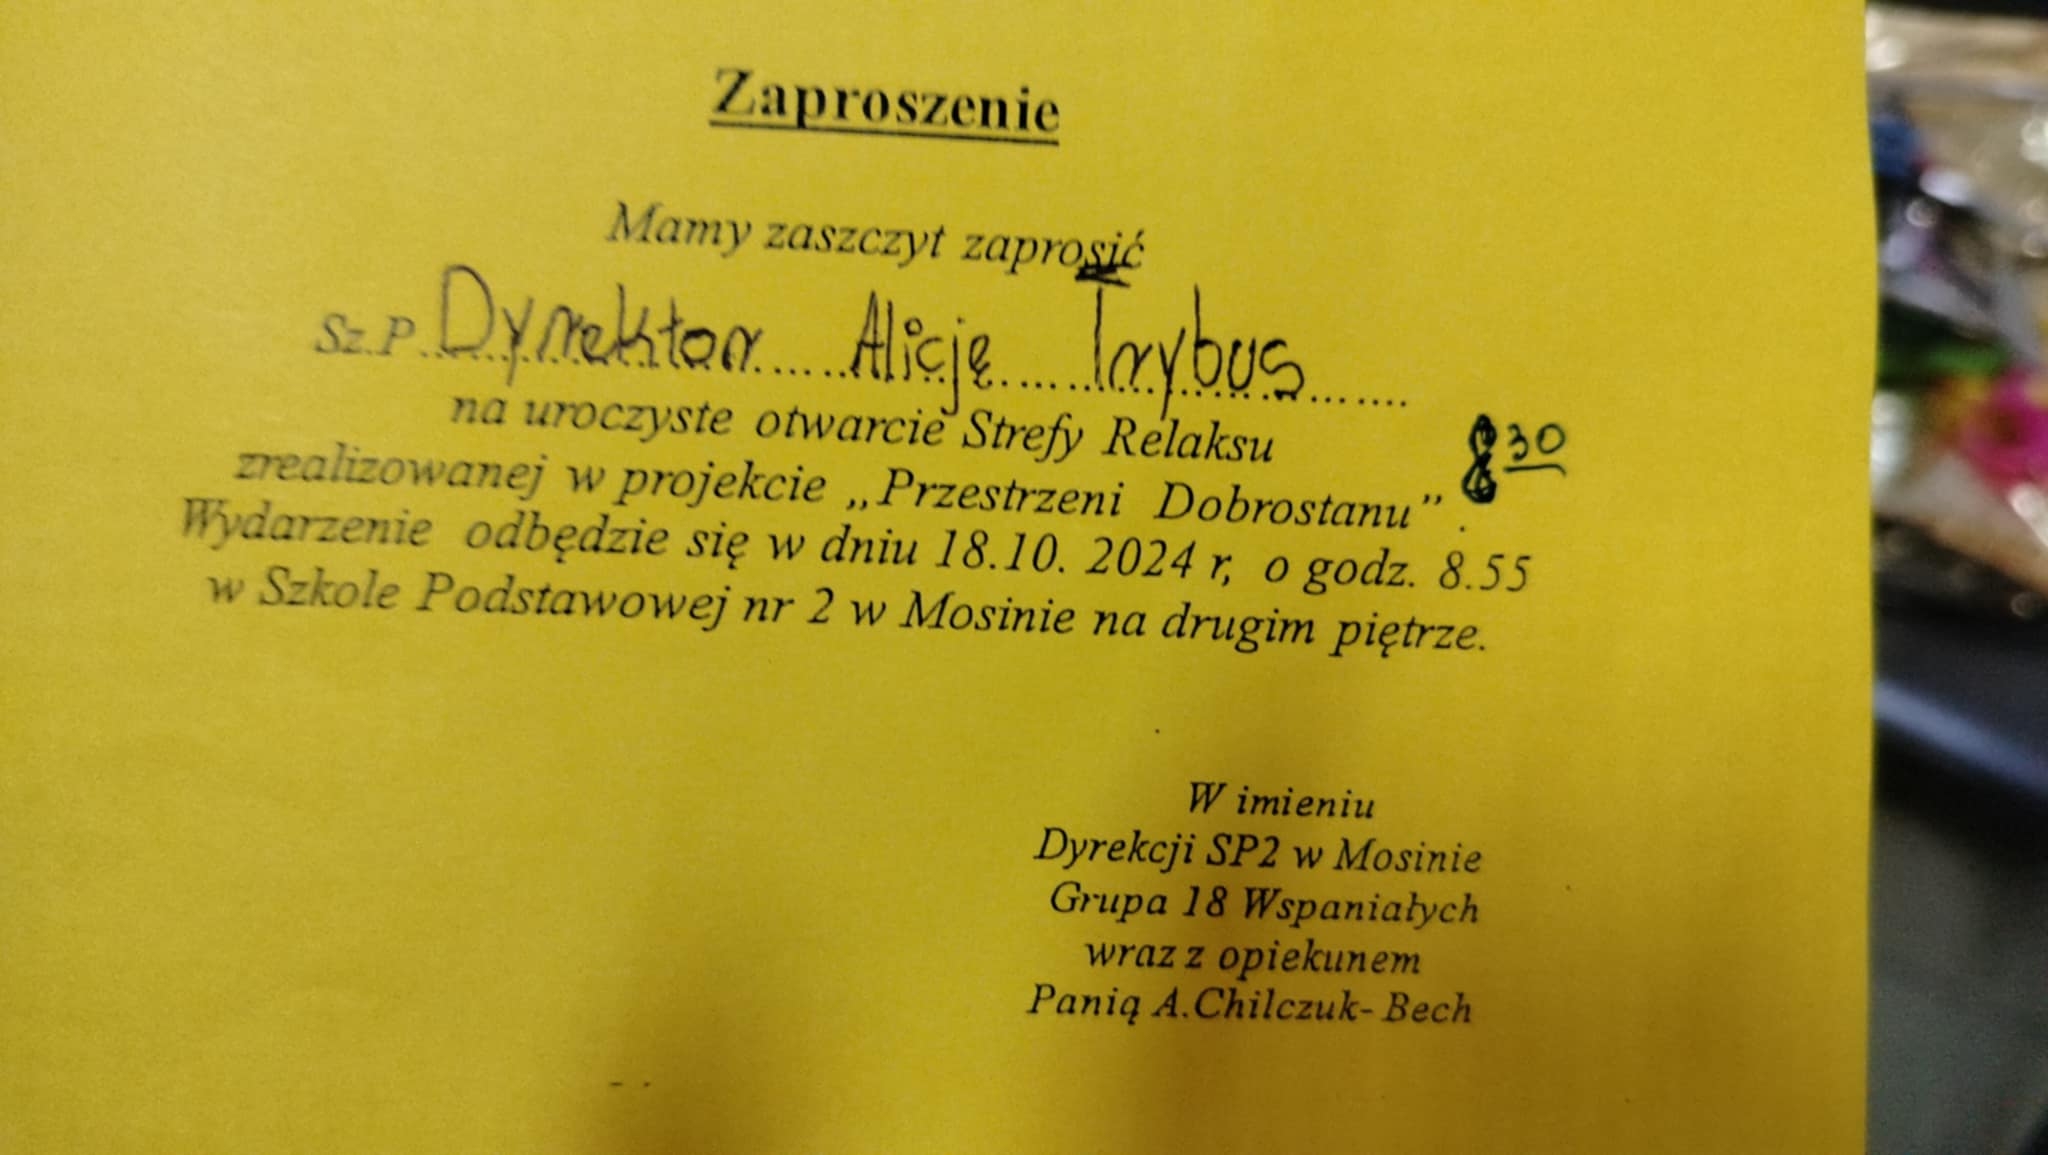 Zaproszenie
Mamy zaszczyt zaprosić
Sz.P. Dyrektor Alicję Trybus
na uroczyste otwarcie Strefy Relaksu
8 30
zrealizowanej w projekcie „Przestrzeni Dobrostanu”.
Wydarzenie odbędzie się w dniu 18.10. 2024 r, o godz. 8.55
w Szkole Podstawowej nr 2 w Mosinie na drugim piętrze.
W imieniu
Dyrekcji SP2 w Mosinie
Grupa 18 Wspaniałych
wraz z opiekunem
Panią A.Chilczuk- Bech